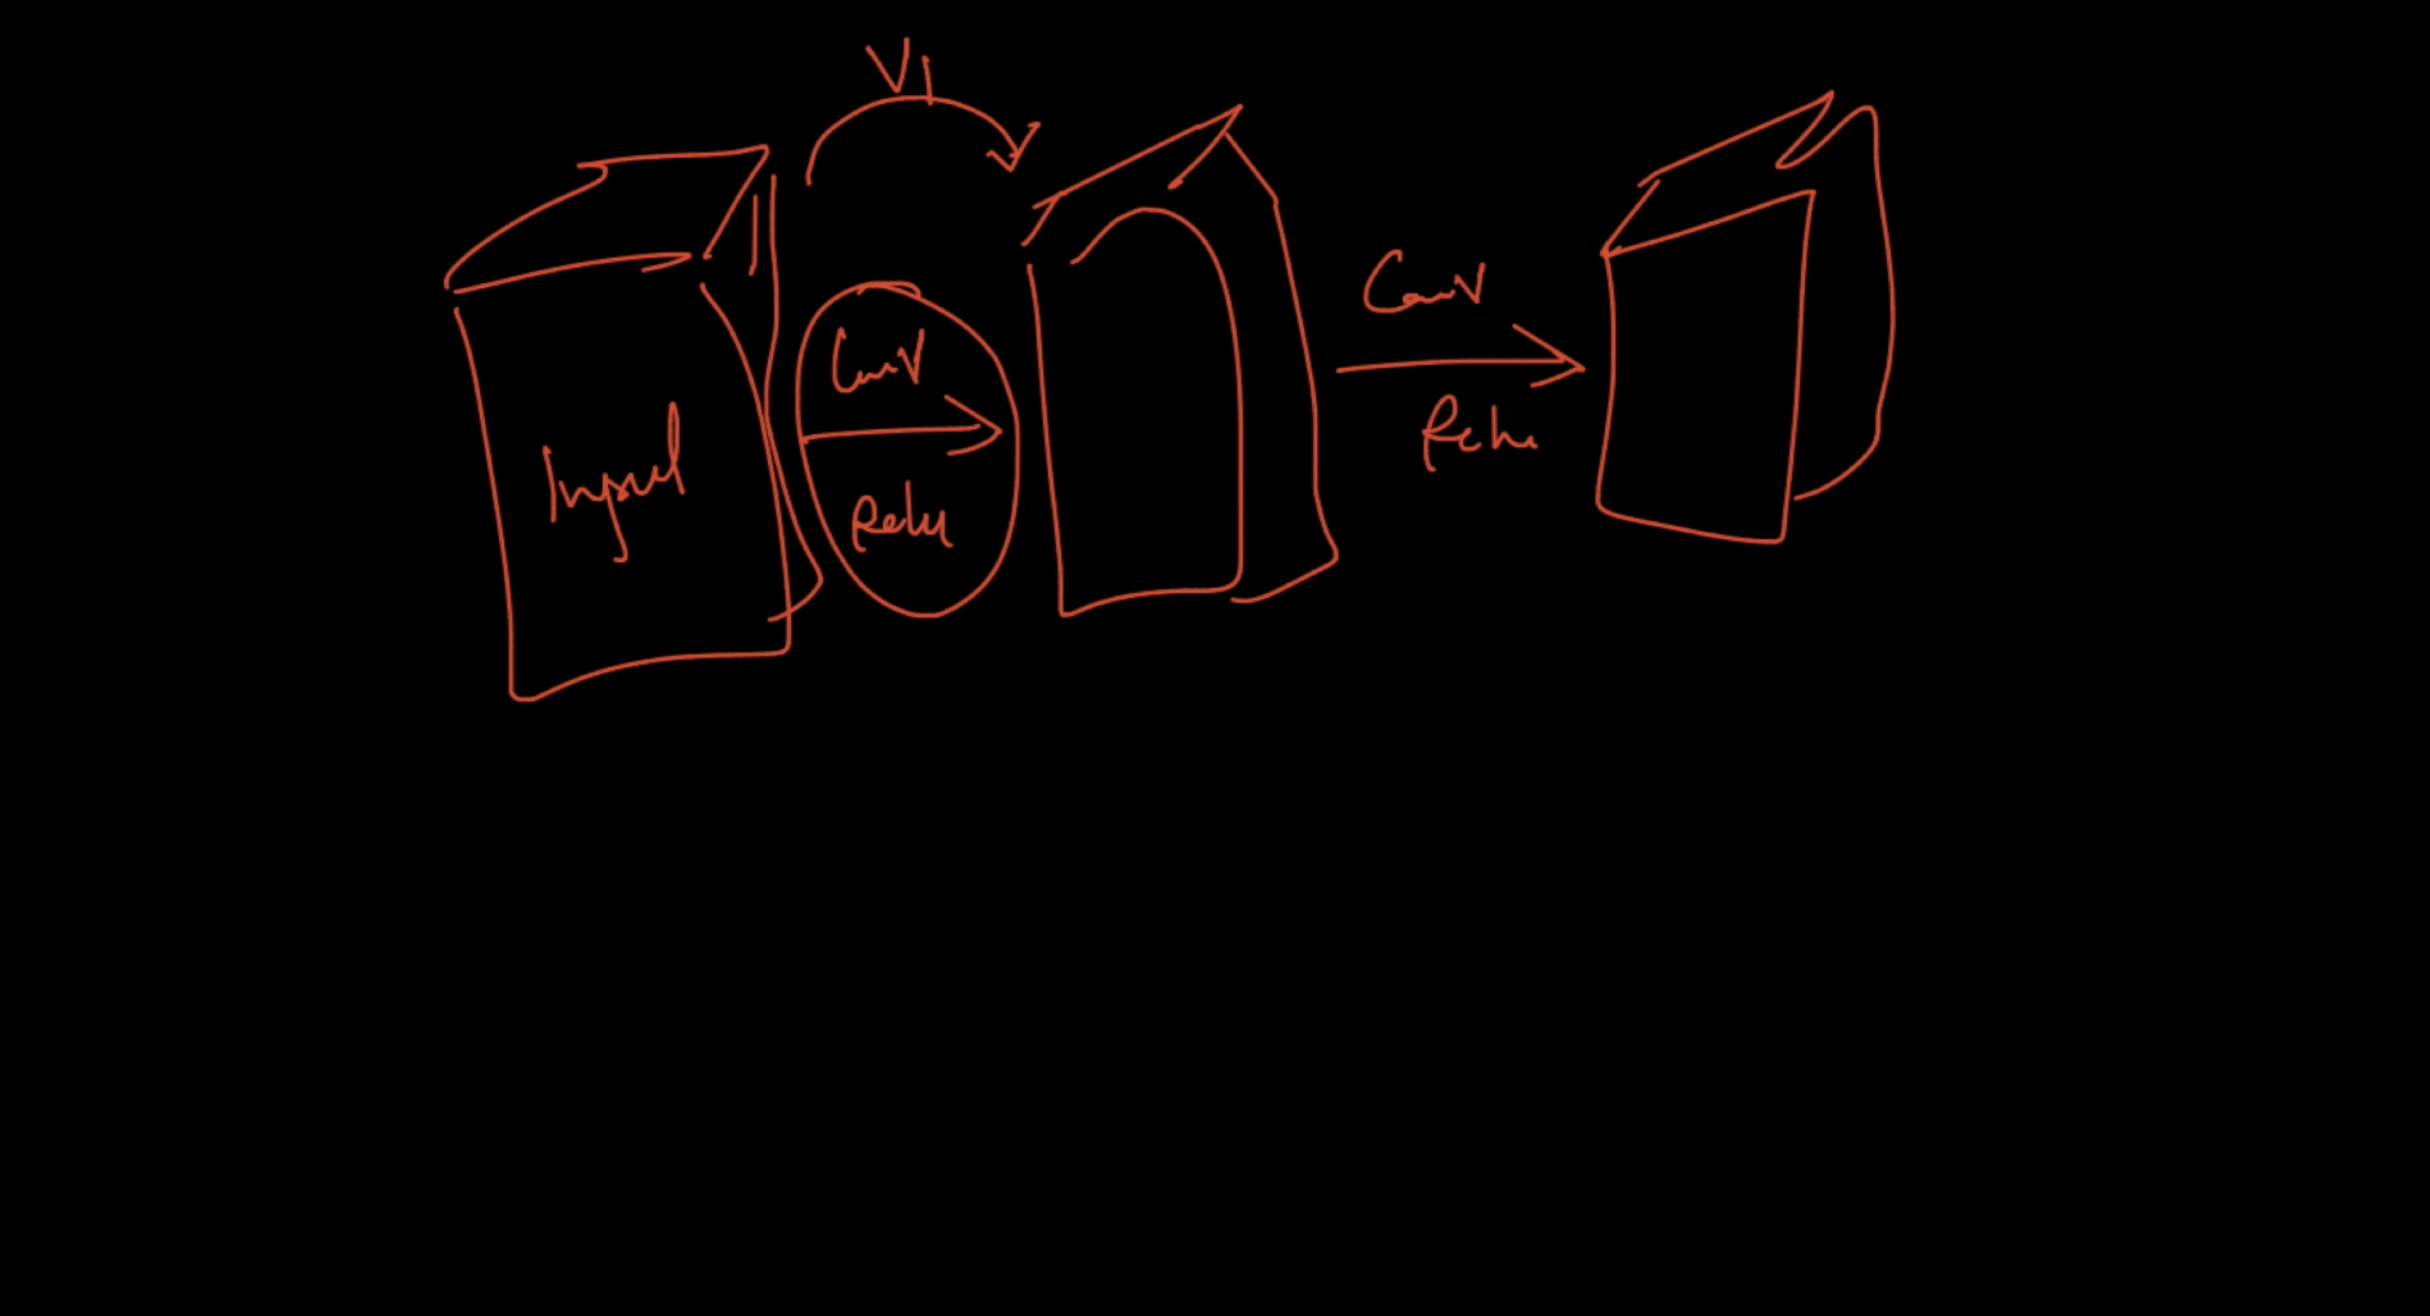 V1
Input
Conv
Relu
Conv
Relu